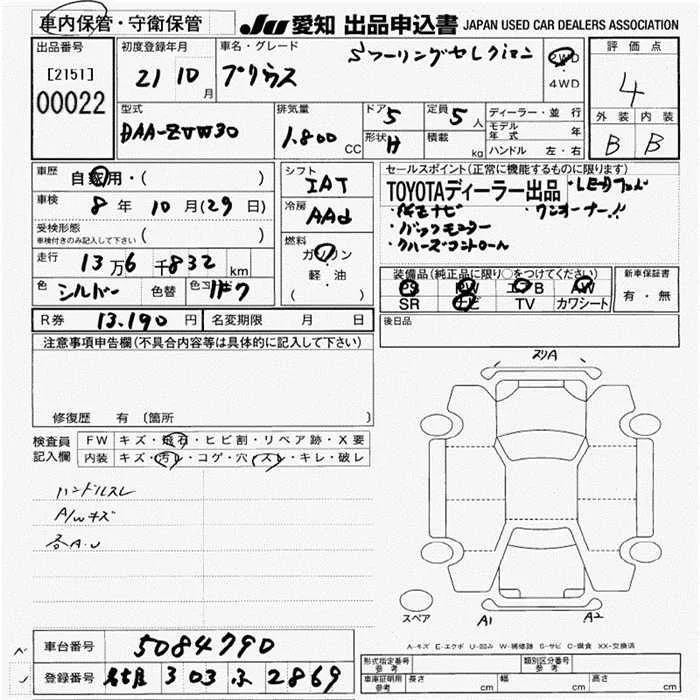 車内保管・守衛保管
JU 愛知 出品申込書 JAPAN USED CAR DEALERS ASSOCIATION
出品番号
[2151]
00022
初度登録年月
21 10 月
車名・グレード
プリウス Sツーリングセレクション
2WD
・
4WD
評価点
4
外装 内装
B B
型式
DAA-ZVW30
排気量
1.800 CC
ドア 5
形状 H
定員 5 人
積載 kg
ディーラー・並行
モデル年式 年
ハンドル 左・右
車歴
自家用・( )
車検
8 年 10 月(29 日)
受検形態
車検付きのみ記入して下さい ( )
走行
13 万 6 千 832 km
色 シルバー 色替 色コード 1F7
シフト
IAT
冷房
AAC
燃料
ガソリン
・
軽・油
( )
セールスポイント(正常に機能するものに限ります)
TOYOTAディーラー出品
・ワンオーナー!!
・バックモニター
・クルーズコントロール
装備品(純正品に限り○をつけてください)
PS PW エアB AW
SR ナビ TV カワシート
新車保証書
有・無
後日品
R券 13.190 円 名変期限 月 日
注意事項申告欄(不具合内容等は具体的に記入して下さい)
修復歴 有 〔箇所 〕
検査員
記入欄
FW キズ・飛石・ヒビ割・リペア跡・X要
内装 キズ・汚レ・コゲ・穴・スレ・キレ・破レ
ハンドルスレ
A/Wキズ
各A.U
スリA
スペア
A1 A2
A-キズ E-エクボ U-凹み W-補修跡 S-サビ C-腐食 XX-交換済
車台番号 5084790
登録番号 303 ふ 2869
形式指定番号
参考
類別区分番号
参考
車庫証明用
参考
長さ cm 幅 cm 高さ cm